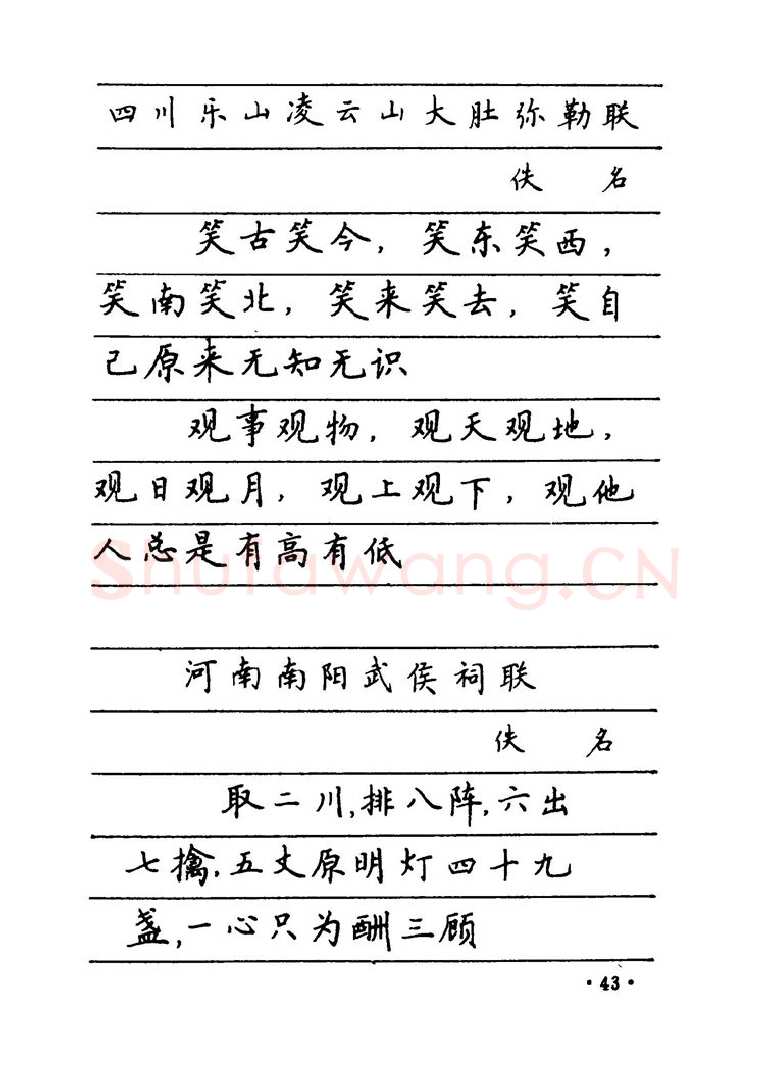 四川乐山凌云山大肚弥勒联
佚 名
笑古笑今，笑东笑西，
笑南笑北，笑来笑去，笑自
己原来无知无识
观事观物，观天观地，
观日观月，观上观下，观他
人总是有高有低
Shufawang.CN
河南南阳武侯祠联
佚 名
取二川，排八阵，六出
七擒，五丈原明灯四十九
盏，一心只为酬三顾
·43·